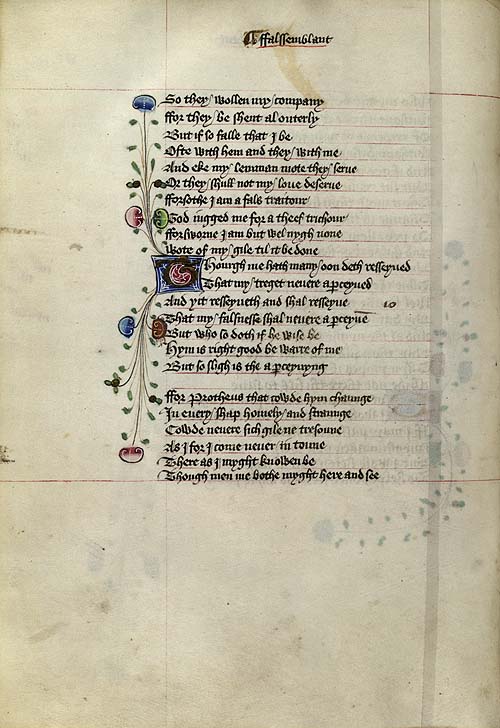 ffalssemblant
So they wollen my company
ffor they be shent al outerly
But if so falle that I be
Ofte with hem and they with me
And eke my lemman mote they serue
Or they shull not my loue deserue
fforsothe I am a fals traitour
God iugged me for a theef trichour
fforsworne I am but wel nygh none
Wote of my gile til it be done
Thourgh me hath many oon deth resseyued
That my treget neuere aperceyued
And yit resseyueth and shal resseyue
That my falsnesse shal neuere aperceyue
But who so doth if he wise be
Hym is right good be warre of me
But so sligh is the aperceyuyng
ffor Protheus that cowde hym chaunge
In euery shap homely and straunge
Cowde neuere sich gile ne tresoune
As I for I come neuer in toune
There as I myght knowen be
Though men me bothe myght here and see